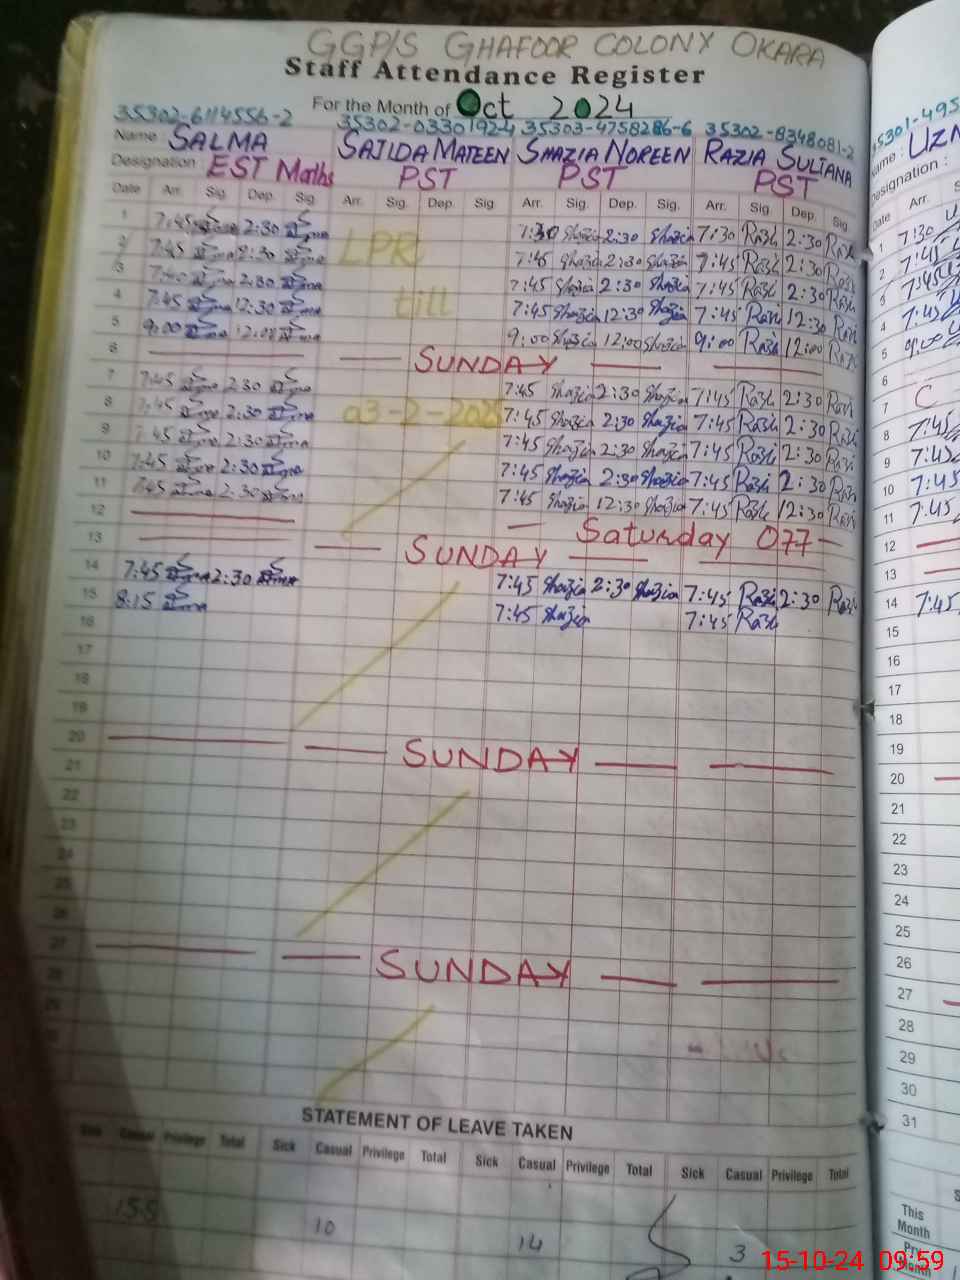 GGP/S GHAFOOR COLONY OKARA
Staff Attendance Register
For the Month of Oct 2024
35302-6114556-2 35302-0330192-4 35303-4758286-6 35302-8348081-2
Name : SALMA SAJIDA MATEEN SHAZIA NOREEN RAZIA SULTANA
Designation : EST Maths PST PST PST
Date Arr. Sig. Dep. Sig. Arr. Sig. Dep. Sig Arr. Sig. Dep. Sig. Arr. Sig. Dep. Sig.
1 7:45 2:30 LPR 7:30 Shazia 2:30 Shazia 7:30 Razi 2:30 Razi
2 7:45 2:30 7:45 Shazia 2:30 Shazia 7:45 Razi 2:30 Razi
3 2:30 till 7:45 Shazia 2:30 Shazia 7:45 Razi 2:30 Razi
4 7:45 12:30 7:45 Shazia 12:30 Shazia 7:45 Razi 12:30 Razi
5 9:00 9:00 Shazia 12:00 Shazia 9:00 Razi 12:00 Razi
6 SUNDAY
7 7:45 2:30 7:45 Shazia 2:30 Shazia 7:45 Razi 2:30 Razi
8 7:45 2:30 03-2-2025 7:45 Shazia 2:30 Shazia 7:45 Razi 2:30 Razi
9 7:45 2:30 7:45 Shazia 2:30 Shazia 7:45 Razi 2:30 Razi
10 7:45 2:30 7:45 Shazia 2:30 Shazia 7:45 Razi 2:30 Razi
11 7:45 2:30 7:45 Shazia 12:30 Shazia 7:45 Razi 12:30 Razi
12 Saturday OFF
13 SUNDAY
14 7:45 2:30 7:45 Shazia 2:30 Shazia 7:45 Razi 2:30 Razi
15 8:15 7:45 Shazia 7:45 Razi
16
17
18
19
20 SUNDAY
21
22
23
24
25
26
27 SUNDAY
28
29
STATEMENT OF LEAVE TAKEN
Sick Casual Privilege Total Sick Casual Privilege Total Sick Casual Privilege Total Sick Casual Privilege Total
10 14 3
35301-495
Name : UZM
Designation :
Date Arr.
1 7:30
2 7:45
3 7:45
4 7:45
5 9:00
6
7 C
8 7:45
9 7:45
10 7:45
11 7:45
12
13
14 7:45
15
16
17
18
19
20
21
22
23
24
25
26
27
28
29
30
31
This
Month
15-10-24 09:59